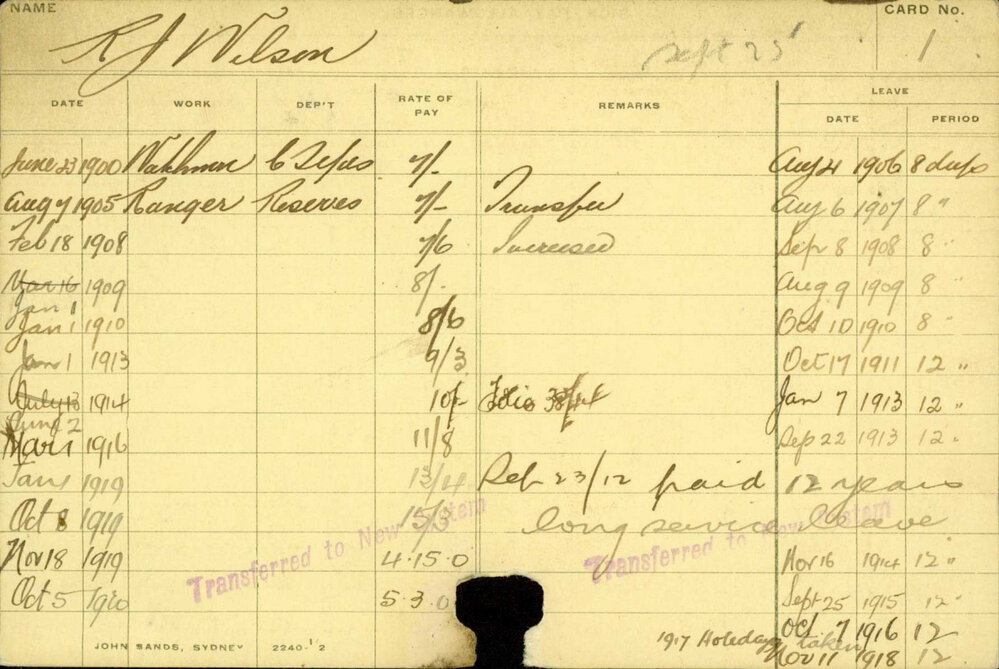 NAME CARD No.
R J Wilson Sept 25 1
DATE WORK DEP'T RATE OF PAY REMARKS LEAVE
DATE PERIOD
June 23 1900 Watchman 7/- Aug 4 1906 8 days
Aug 7 1905 Ranger Reserves 7/- Transfer Aug 6 1907 8 "
Feb 18 1908 7/6 Increased Sep 8 1908 8 "
Mar 16 1909 8/- Aug 9 1909 8 "
Jan 1
Jan 1 1910 8/6 Oct 10 1910 8 "
Jan 1 1913 9/3 Oct 17 1911 12 "
July 13 1914 10/- Folio Jan 7 1913 12 "
June 2
Mar 1 1916 11/8 Sep 22 1913 12 "
Jan 1 1919 13/4 Feb 23/12 paid 12 years
Oct 8 1919 15/3 long service leave
Transferred to New System Transferred to New System
Nov 18 1919 4.15.0 Nov 16 1914 12 "
Oct 5 1920 5.3.0 Sept 25 1915 12 "
Oct 7 1916 12
1917 Holidays taken
Nov 11 1918 12
JOHN SANDS, SYDNEY 2240-½